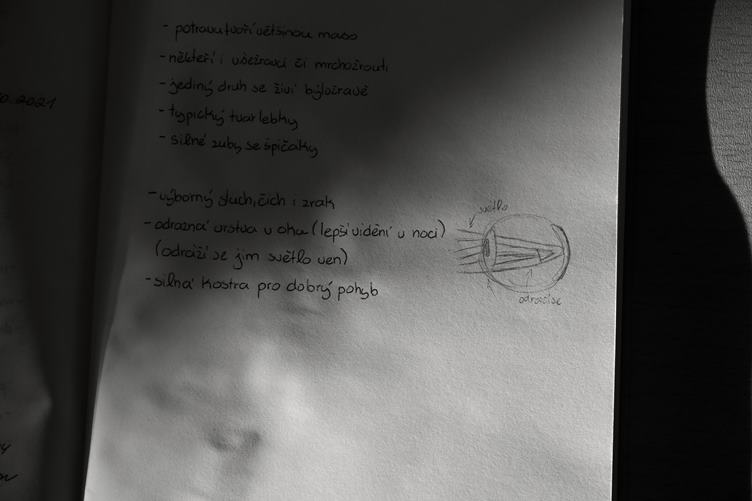 - potravu tvoří většinou maso
- někteří i všežravci či mrchožrouti
- jediný druh se živí býložravě
- typický tvar lebky
- silné zuby se špičáky
- výborný sluch, čich i zrak
- odrazná vrstva v oku (lepší vidění v noci)
(odráží se jim světlo ven)
- silná kostra pro dobrý pohyb
světlo
odrazí se
.2021